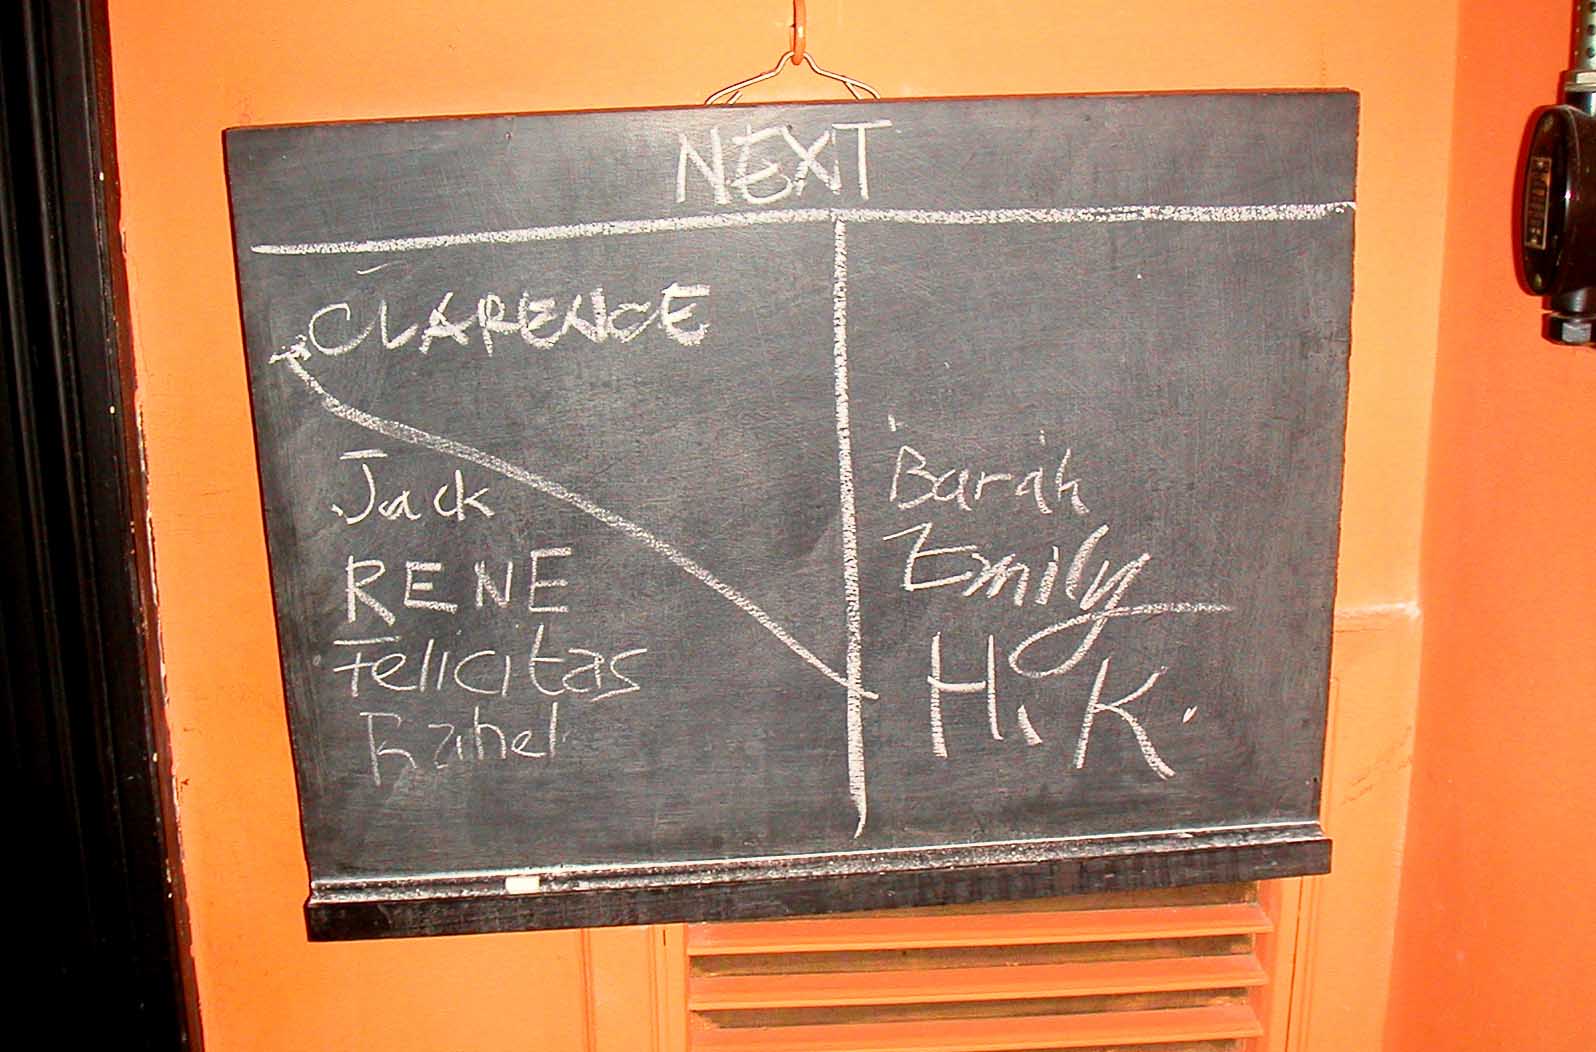 NEXT
CLARENCE
Jack
RENE
Felicitas
Rahel
Barah
Emily
H. K.